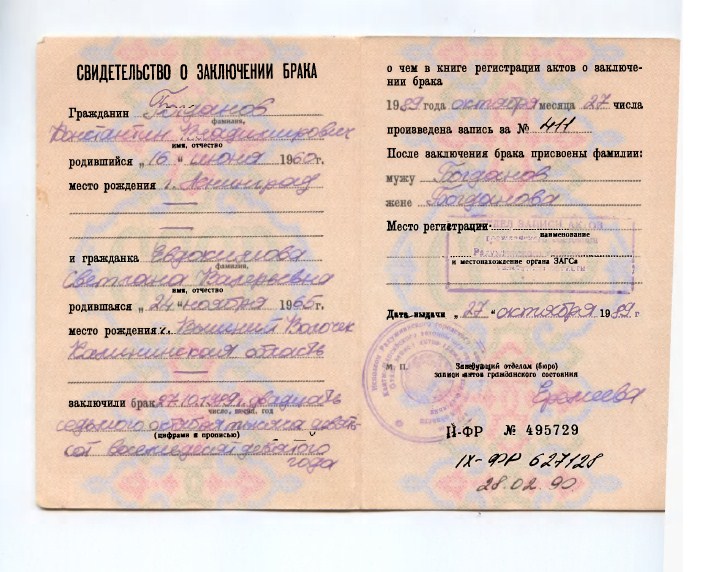 СВИДЕТЕЛЬСТВО О ЗАКЛЮЧЕНИИ БРАКА
Гражданин Богданов
фамилия,
Константин Владимирович
имя, отчество
родившийся „ 16 “ июня 1960 г.
место рождения г. Ленинград
—
—
и гражданка Евдокимова
фамилия,
Светлана Валерьевна
имя, отчество
родившаяся „ 24 “ ноября 1965 г.
место рождения г. Вышний Волочек
Калининская область
—
заключили брак 27.10.1989г. двадцать
число, месяц, год
седьмого октября тысяча девять
(цифрами и прописью)
сот восемьдесят девятого
года
о чем в книге регистрации актов о заключе-
нии брака
1989 года октября месяца 27 числа
произведена запись за № 411
После заключения брака присвоены фамилии:
мужу Богданов
жене Богданова
ОТДЕЛ ЗАПИСИ АКТОВ
Место регистрации
наименование
и местонахождение органа ЗАГСа
Дата выдачи „ 27 “ октября 1989 г
М. П. Заведующий отделом (бюро)
записи актов гражданского состояния
Еремеева
II-ФР № 495729
IX-ФР 627128
28.02.90